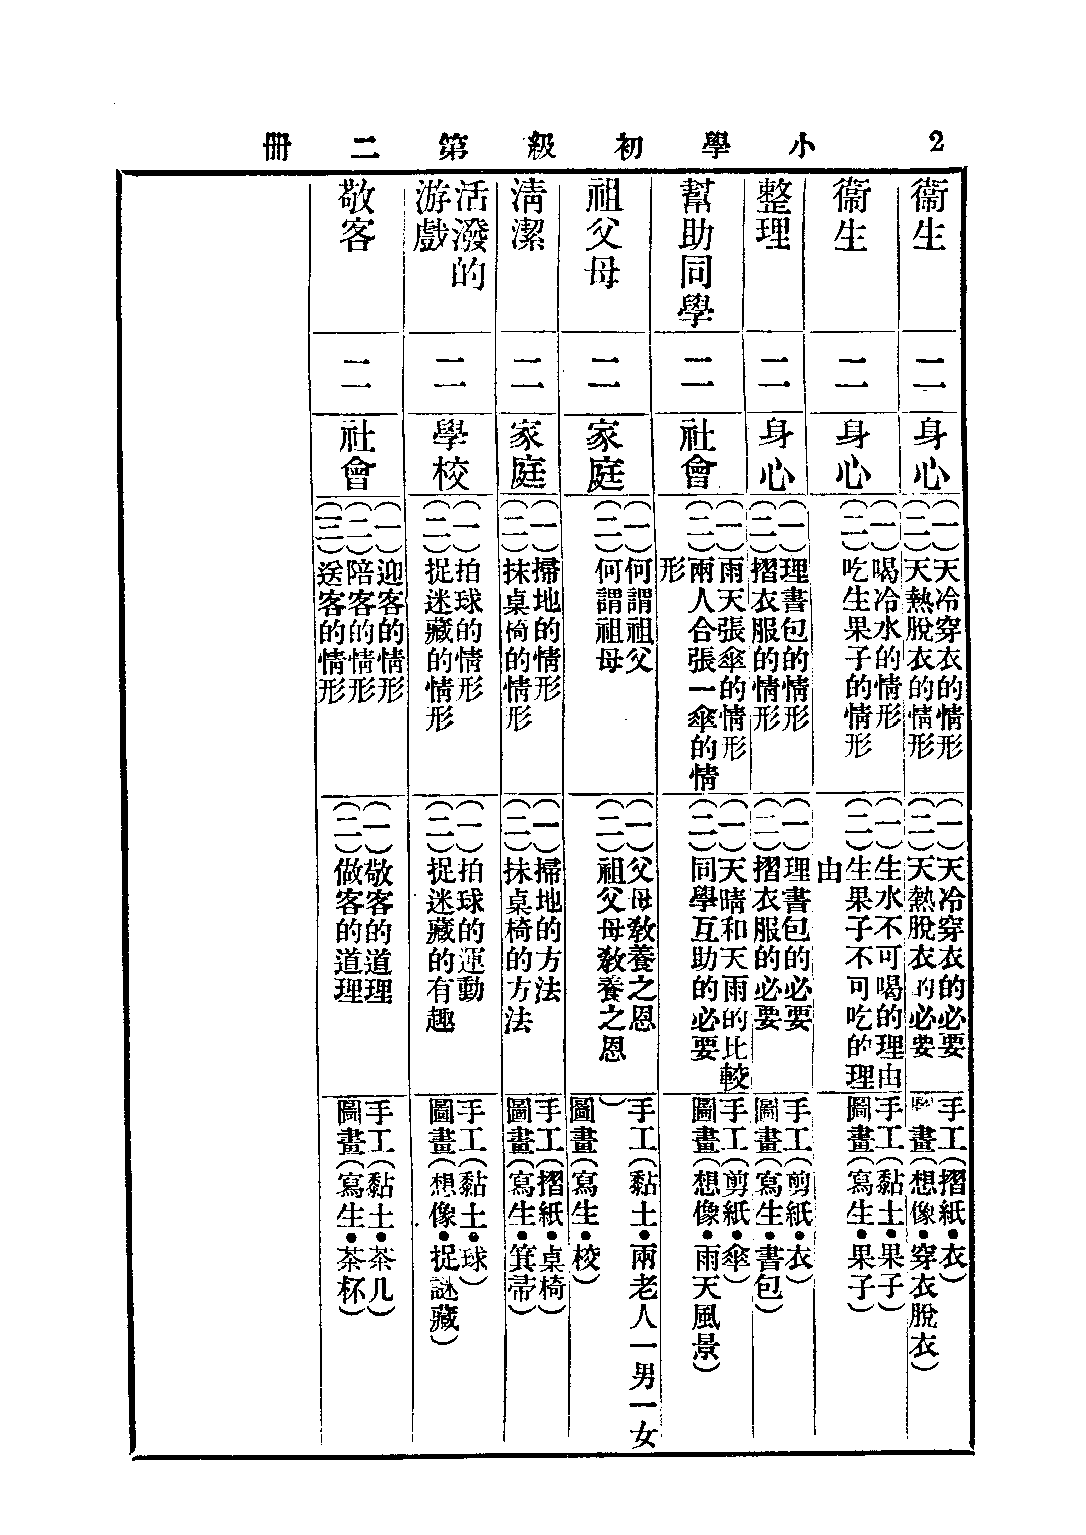 小學初級第二冊 2
衞生
二
身心
(一)天冷穿衣的情形
(二)天熱脫衣的情形
(一)天冷穿衣的必要
(二)天熱脫衣的必要
手工(摺紙•衣)
畫(想像•穿衣脫衣)
衞生
二
身心
(一)喝冷水的情形
(二)吃生果子的情形
(一)生水不可喝的理由
(二)生果子不可吃的理
由
手工(黏土•果子)
圖畫(寫生•果子)
整理
二
身心
(一)理書包的情形
(二)摺衣服的情形
(一)理書包的必要
(二)摺衣服的必要
手工(剪紙•衣)
圖畫(寫生•書包)
幫助同學
二
社會
(一)雨天張傘的情形
(二)兩人合張一傘的情
形
(一)天晴和天雨的比較
(二)同學互助的必要
手工(剪紙•傘)
圖畫(想像•雨天風景)
祖父母
二
家庭
(一)何謂祖父
(二)何謂祖母
(一)父母敎養之恩
(二)祖父母敎養之恩
手工(黏土•兩老人一男一女
)
圖畫(寫生•校)
淸潔
二
家庭
(一)掃地的情形
(二)抹桌椅的情形
(一)掃地的方法
(二)抹桌椅的方法
手工(摺紙•桌椅)
圖畫(寫生•箕帚)
活潑的
游戲
二
學校
(一)拍球的情形
(二)捉迷藏的情形
(一)拍球的運動
(二)捉迷藏的有趣
手工(黏土•球)
圖畫(想像•捉謎藏)
敬客
二
社會
(一)迎客的情形
(二)陪客的情形
(三)送客的情形
(一)敬客的道理
(二)做客的道理
手工(黏土•茶几)
圖畫(寫生•茶杯)